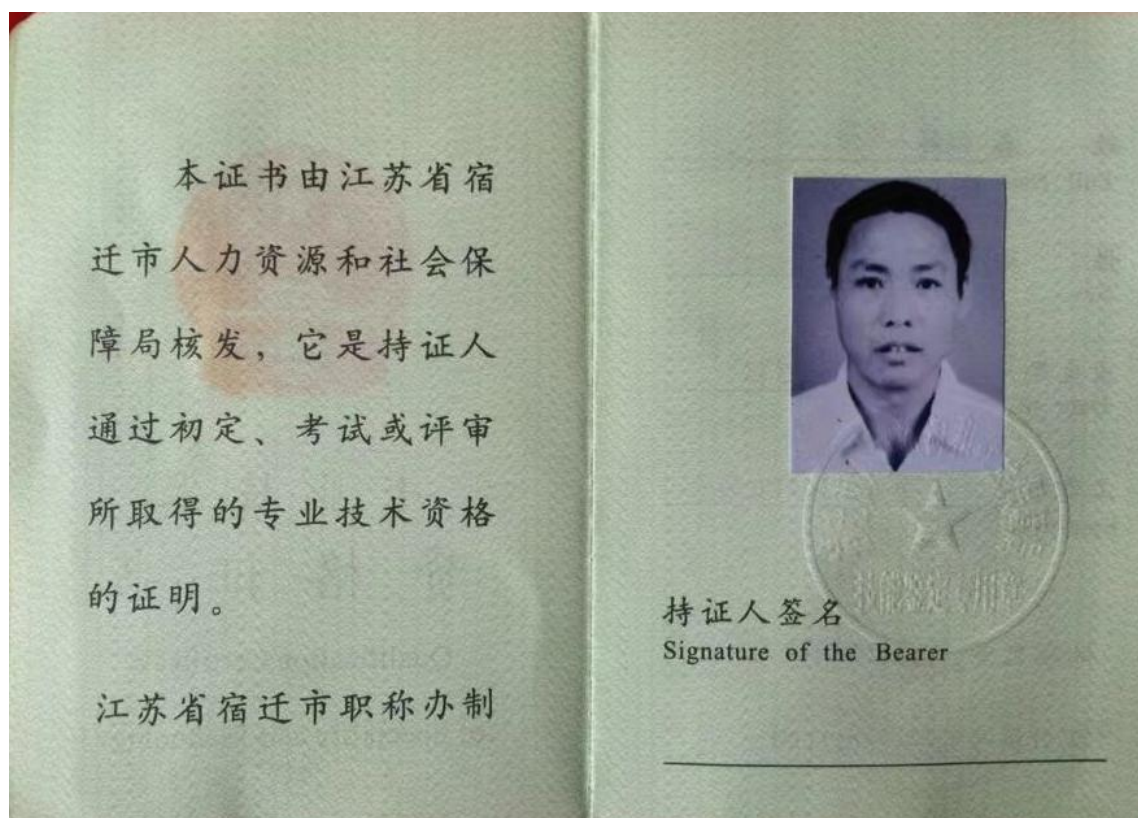 本证书由江苏省宿
迁市人力资源和社会保
障局核发，它是持证人
通过初定、考试或评审
所取得的专业技术资格
的证明。
江苏省宿迁市职称办制
持证人签名
Signature of the Bearer